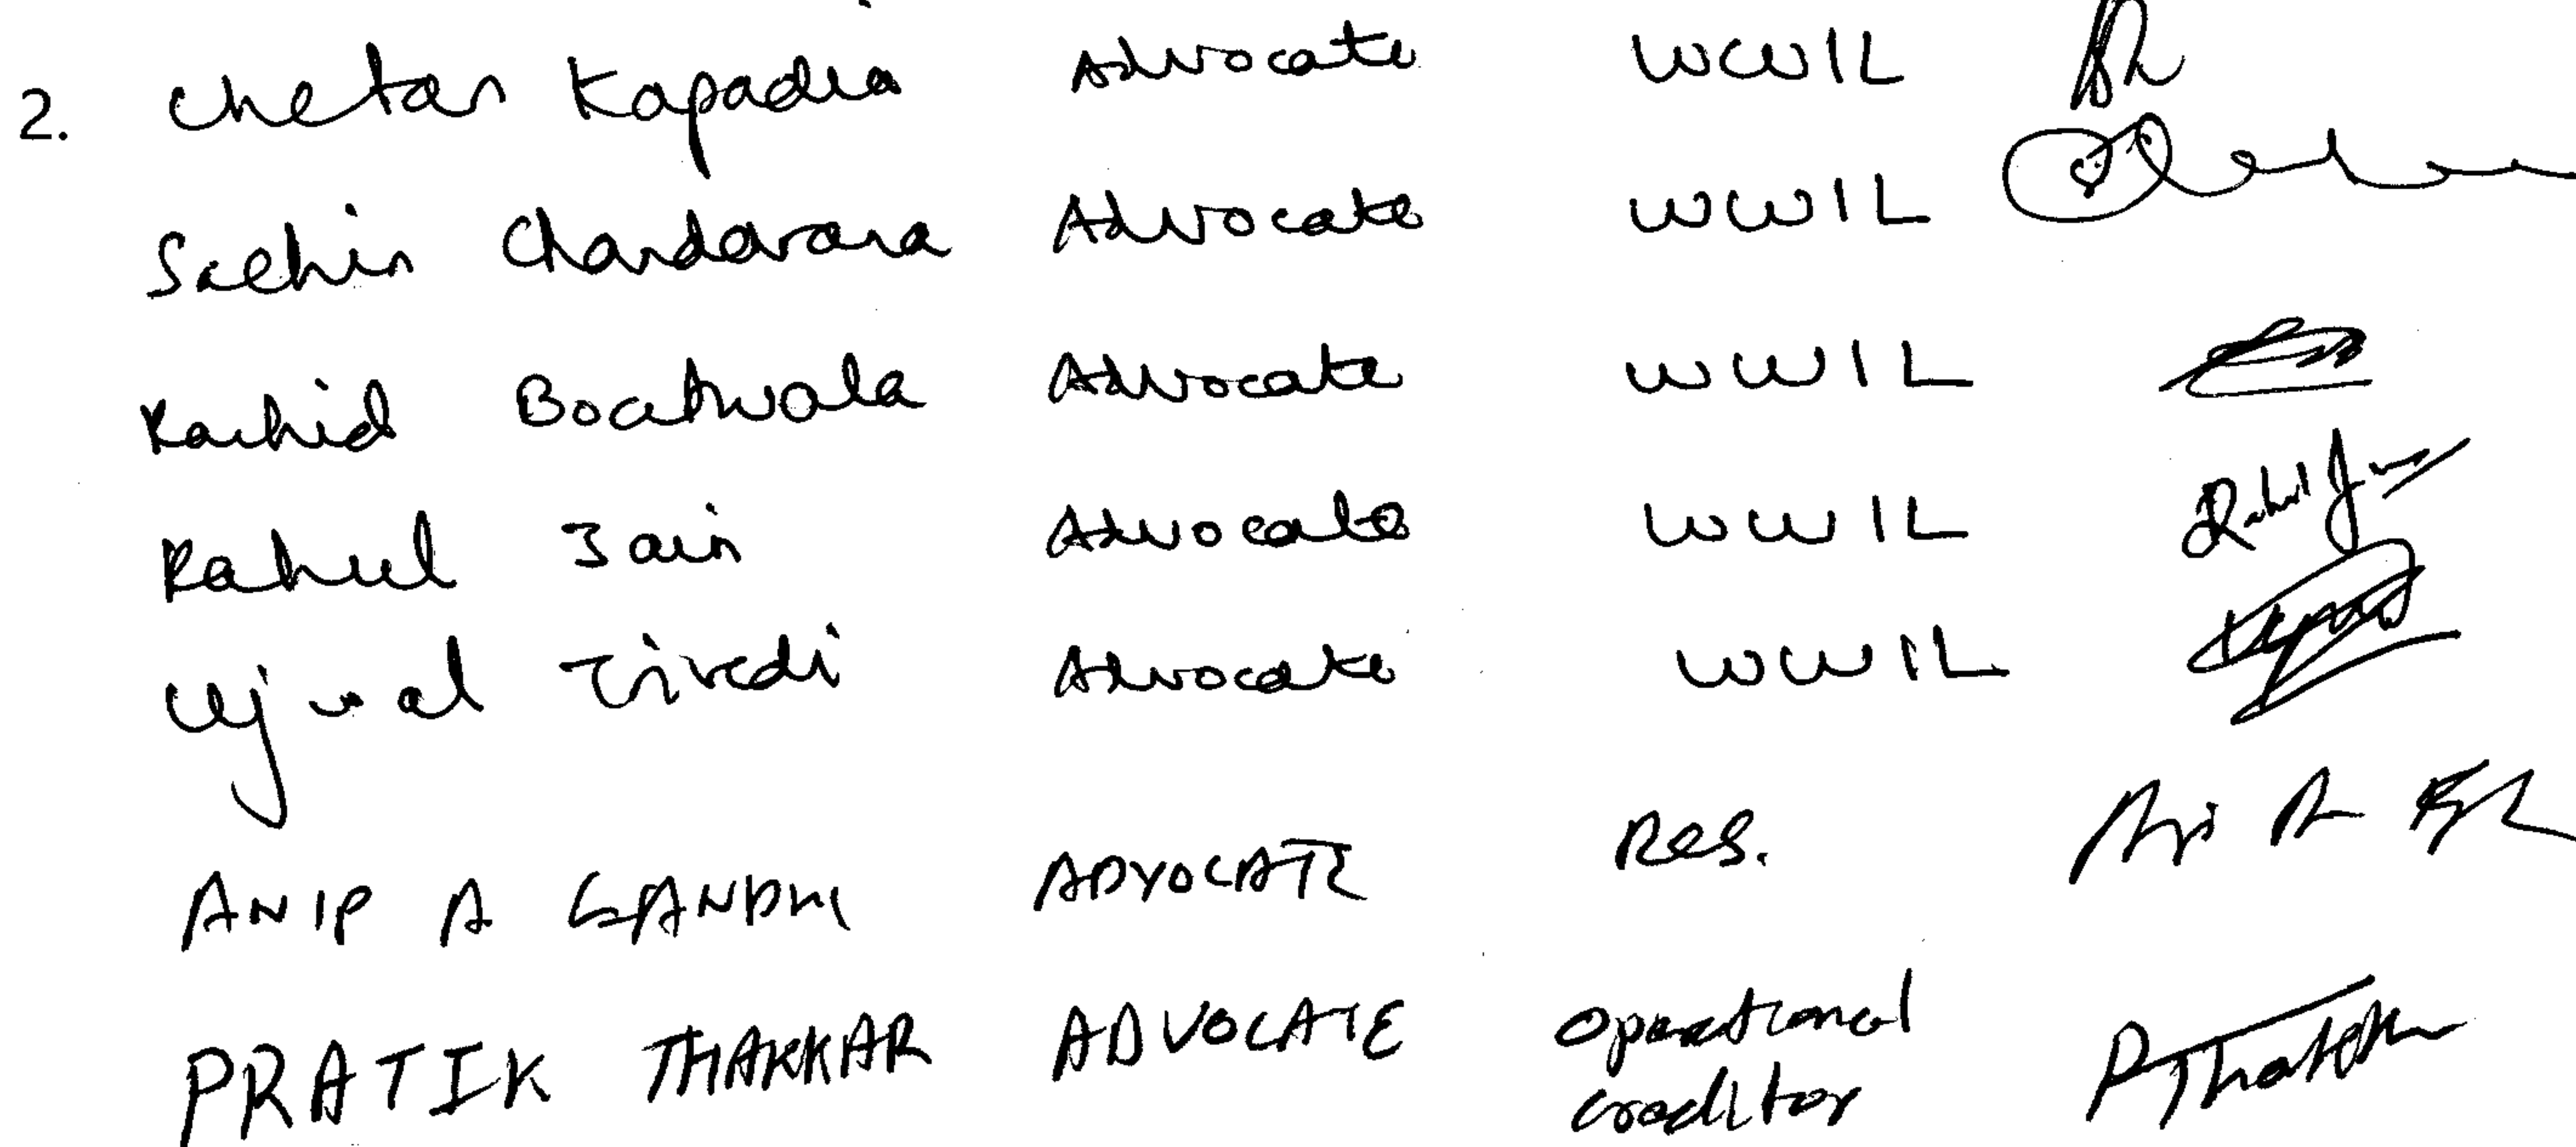 2. Chetan Kapadia Advocate WWIL
Sachin Chandarana Advocate WWIL
Rashid Boatwala Advocate WWIL
Rahul Jain Advocate WWIL Rahul Jain
Ujwal Trivedi Advocate WWIL
ANIP A GANDHI ADVOCATE Res.
PRATIK THAKKAR ADVOCATE Operational
Creditor PJThakkar